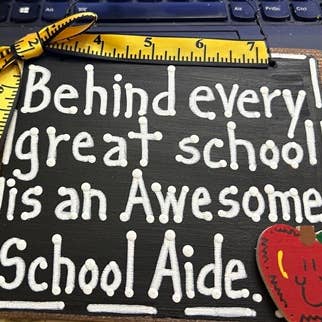 4 5 6 7
Behind every
great school
is an Awesome
School Aide.